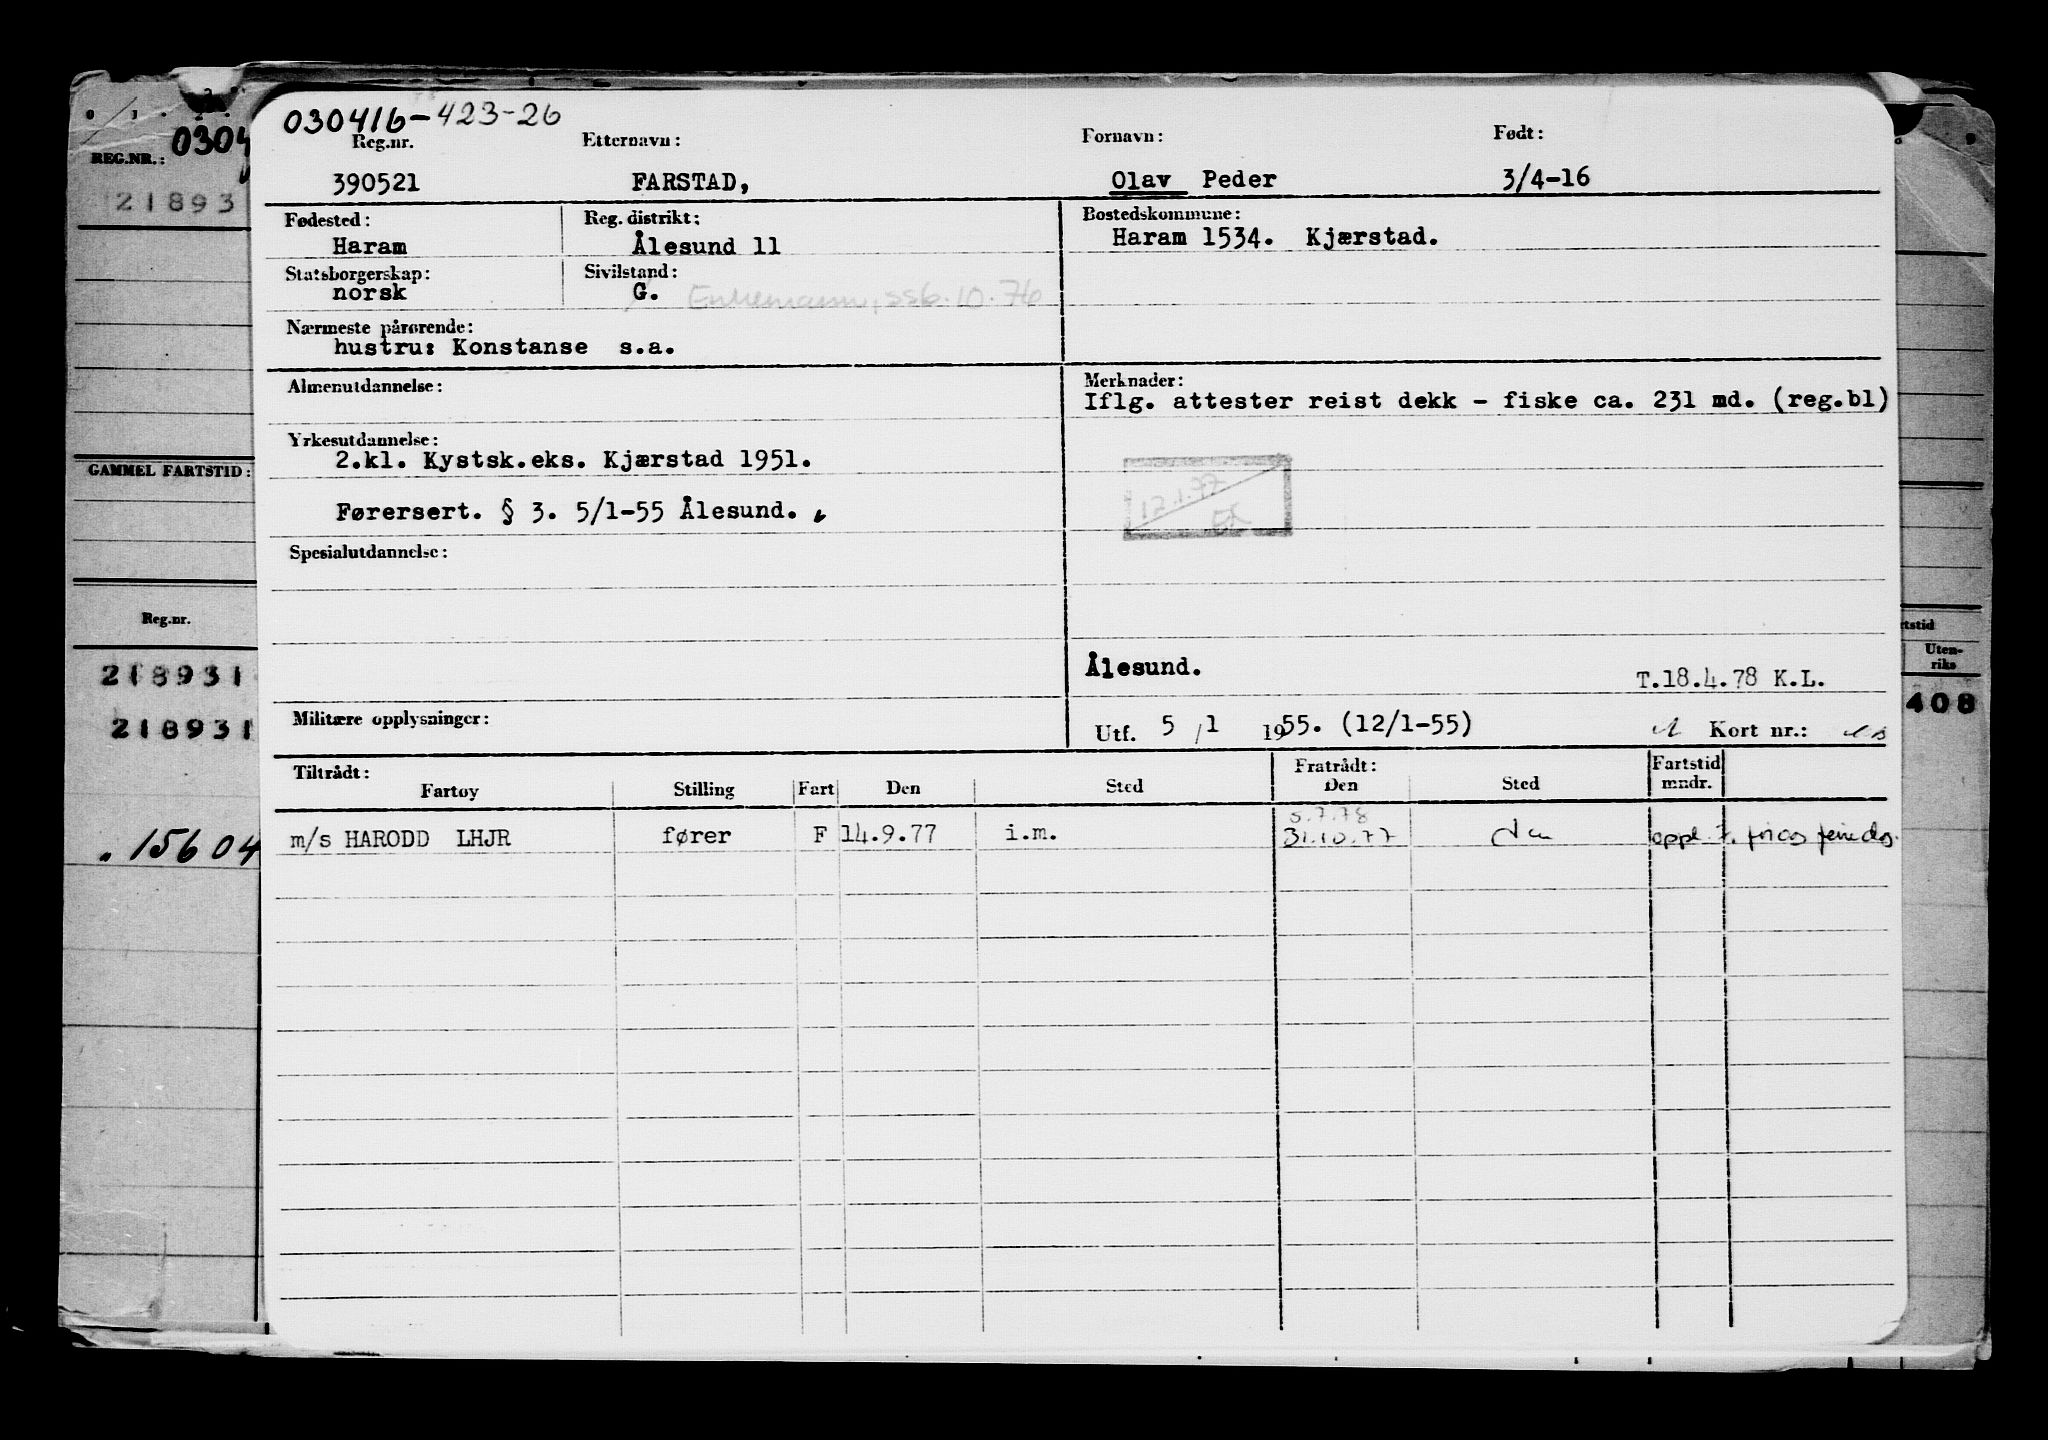 030416-423-26
Reg.nr. Etternavn: Fornavn: Født:
390521 FARSTAD, Olav Peder 3/4-16
Fødested: Reg. distrikt: Bostedskommune:
Haram Ålesund 11 Haram 1534. Kjærstad.
Statsborgerskap: Sivilstand:
norsk G. Enkemann, 10.76
Nærmeste pårørende:
hustru: Konstanse s.a.
Almenutdannelse: Merknader:
Iflg. attester reist dekk - fiske ca. 231 md. (reg.bl)
Yrkesutdannelse:
2.kl. Kystsk.eks. Kjærstad 1951.
12.1.77
Førersert. § 3. 5/1-55 Ålesund.
Spesialutdannelse:
Ålesund. T.18.4.78 K.L.
Militære opplysninger: Utf. 5/1 1955. (12/1-55) Kort nr.:
Tiltrådt: Fratrådt: Fartstid
Fartøy Stilling Fart Den Sted Den Sted mndr.
5.7.78
m/s HARODD LHJR fører F 14.9.77 i.m. 31.10.77
0304
REG.NR.:
21893
GAMMEL FARTSTID:
Reg.nr.
218931
218931
15604
rtstid
Uten-
riks
408